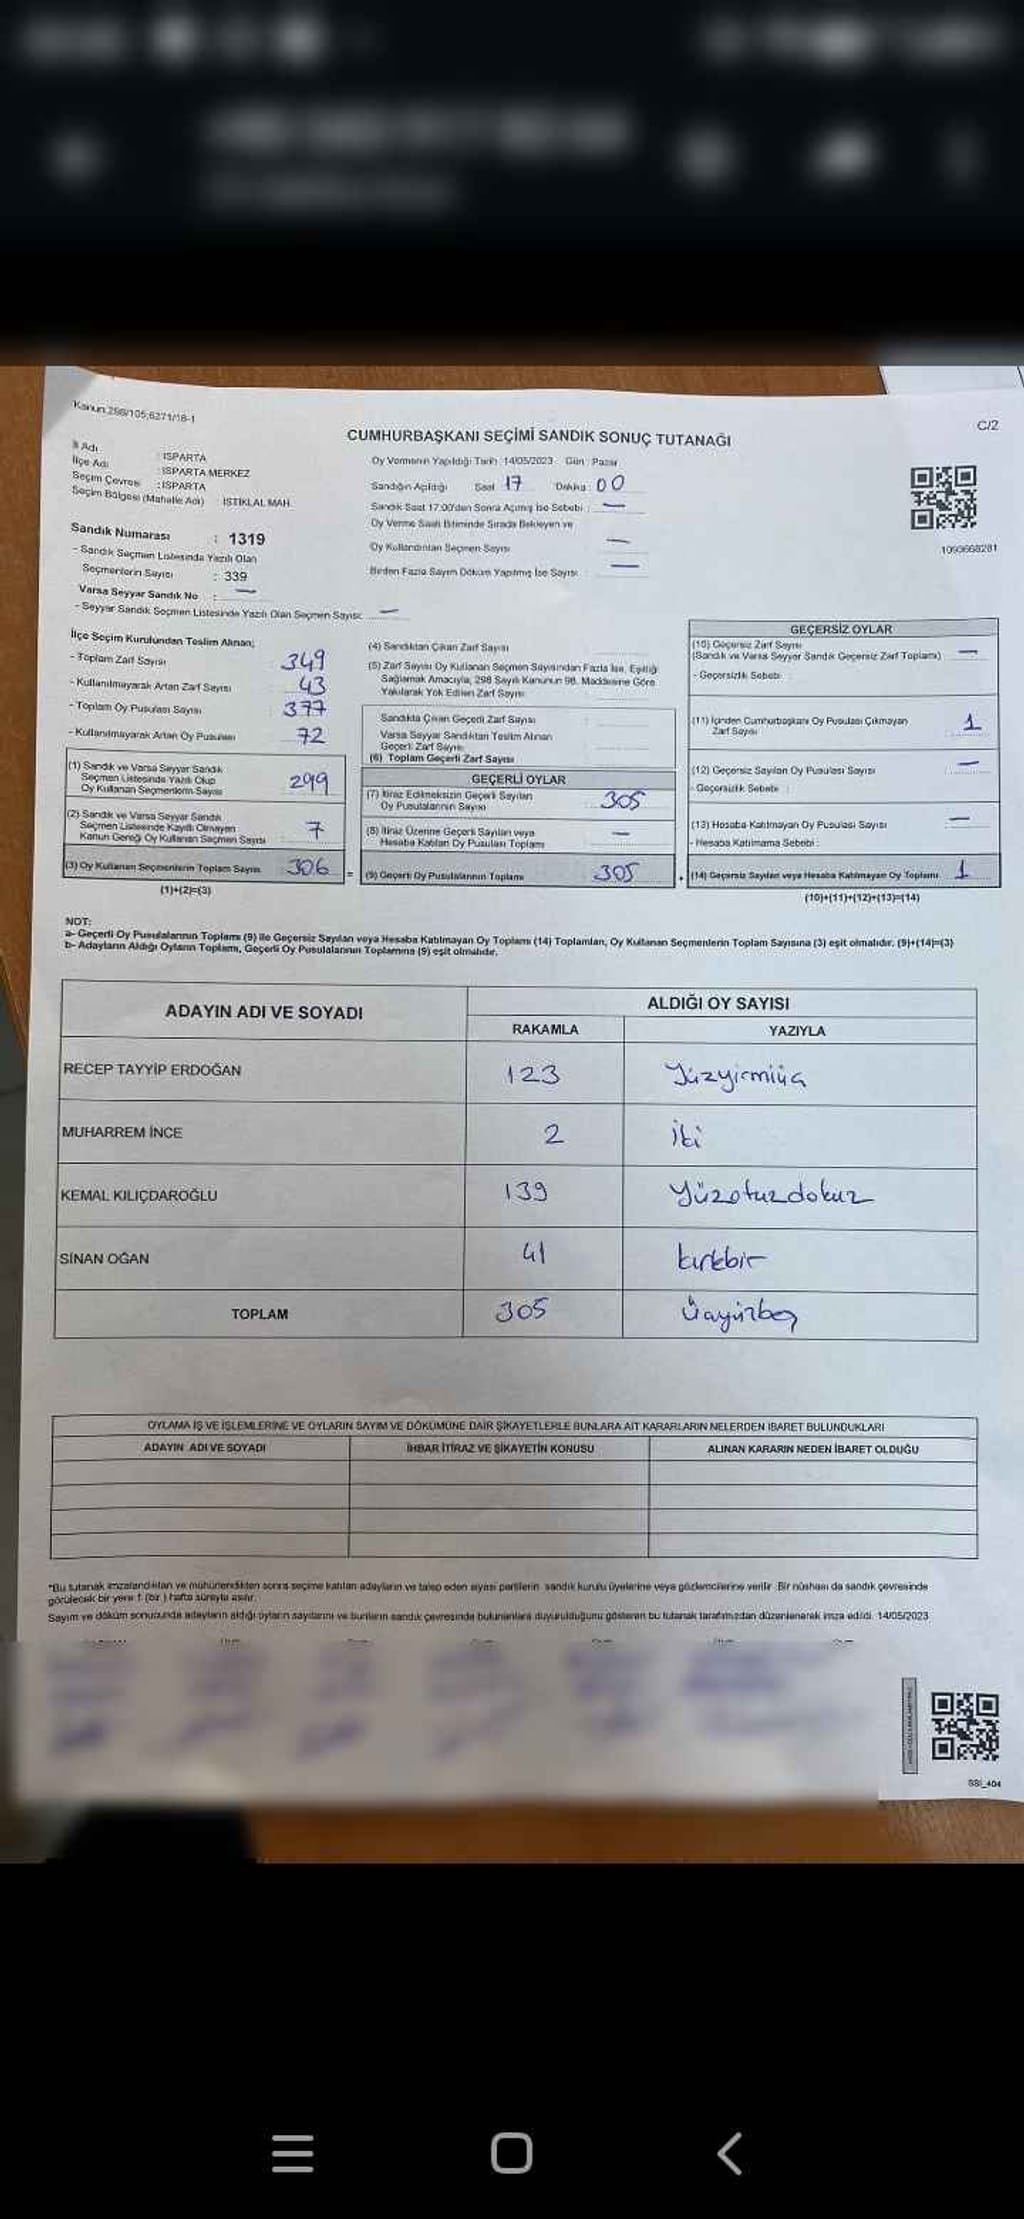 Kanun:298/105;6271/18-1
C/2
CUMHURBAŞKANI SEÇİMİ SANDIK SONUÇ TUTANAĞI
İl Adı : ISPARTA
İlçe Adı : ISPARTA MERKEZ
Seçim Çevresi : ISPARTA
Seçim Bölgesi (Mahalle Adı) : İSTİKLAL MAH.
Oy Vermenin Yapıldığı Tarih :14/05/2023 Gün : Pazar
Sandığın Açıldığı Saat 17 Dakika : 00
Sandık Saat 17.00'den Sonra Açılmış İse Sebebi : —
Oy Verme Saati Bitiminde Sırada Bekleyen ve
Oy Kullandırılan Seçmen Sayısı —
Birden Fazla Sayım Döküm Yapılmış İse Sayısı : —
1090668281
Sandık Numarası : 1319
- Sandık Seçmen Listesinde Yazılı Olan
Seçmenlerin Sayısı : 339
Varsa Seyyar Sandık No : —
- Seyyar Sandık Seçmen Listesinde Yazılı Olan Seçmen Sayısı: —
İlçe Seçim Kurulundan Teslim Alınan;
- Toplam Zarf Sayısı 349
- Kullanılmayarak Artan Zarf Sayısı 43
- Toplam Oy Pusulası Sayısı 377
- Kullanılmayarak Artan Oy Pusulası 72
(1) Sandık ve Varsa Seyyar Sandık
Seçmen Listesinde Yazılı Olup
Oy Kullanan Seçmenlerin Sayısı 299
(2) Sandık ve Varsa Seyyar Sandık
Seçmen Listesinde Kayıtlı Olmayan
Kanun Gereği Oy Kullanan Seçmen Sayısı 7
(3) Oy Kullanan Seçmenlerin Toplam Sayısı 306
(1)+(2)=(3)
(4) Sandıktan Çıkan Zarf Sayısı
(5) Zarf Sayısı Oy Kullanan Seçmen Sayısından Fazla İse, Eşitliği
Sağlamak Amacıyla, 298 Sayılı Kanunun 98. Maddesine Göre
Yakılarak Yok Edilen Zarf Sayısı
Sandıkta Çıkan Geçerli Zarf Sayısı
Varsa Seyyar Sandıktan Teslim Alınan
Geçerli Zarf Sayısı
(6) Toplam Geçerli Zarf Sayısı
GEÇERLİ OYLAR
(7) İtiraz Edilmeksizin Geçerli Sayılan
Oy Pusulalarının Sayısı 305
(8) İtiraz Üzerine Geçerli Sayılan veya
Hesaba Katılan Oy Pusulası Toplamı —
= (9) Geçerli Oy Pusulalarının Toplamı 305
GEÇERSİZ OYLAR
(10) Geçersiz Zarf Sayısı
(Sandık ve Varsa Seyyar Sandık Geçersiz Zarf Toplamı) —
- Geçersizlik Sebebi :
(11) İçinden Cumhurbaşkanı Oy Pusulası Çıkmayan
Zarf Sayısı 1
(12) Geçersiz Sayılan Oy Pusulası Sayısı —
- Geçersizlik Sebebi :
(13) Hesaba Katılmayan Oy Pusulası Sayısı —
- Hesaba Katılmama Sebebi :
+ (14) Geçersiz Sayılan veya Hesaba Katılmayan Oy Toplamı 1
(10)+(11)+(12)+(13)=(14)
NOT:
a- Geçerli Oy Pusulalarının Toplamı (9) ile Geçersiz Sayılan veya Hesaba Katılmayan Oy Toplamı (14) Toplamları, Oy Kullanan Seçmenlerin Toplam Sayısına (3) eşit olmalıdır. (9)+(14)=(3)
b- Adayların Aldığı Oyların Toplamı, Geçerli Oy Pusulalarının Toplamına (9) eşit olmalıdır.
ADAYIN ADI VE SOYADI ALDIĞI OY SAYISI
RAKAMLA YAZIYLA
RECEP TAYYİP ERDOĞAN 123 Yüzyirmiüç
MUHARREM İNCE 2 iki
KEMAL KILIÇDAROĞLU 139 Yüzotuzdokuz
SİNAN OĞAN 41 kırkbir
TOPLAM 305 Üçyüzbeş
OYLAMA İŞ VE İŞLEMLERİNE VE OYLARIN SAYIM VE DÖKÜMÜNE DAİR ŞİKAYETLERLE BUNLARA AİT KARARLARIN NELERDEN İBARET BULUNDUKLARI
ADAYIN ADI VE SOYADI İHBAR İTİRAZ VE ŞİKAYETİN KONUSU ALINAN KARARIN NEDEN İBARET OLDUĞU
*Bu tutanak imzalandıktan ve mühürlendikten sonra seçime katılan adayların ve talep eden siyasi partilerin sandık kurulu üyelerine veya gözlemcilerine verilir. Bir nüshası da sandık çevresinde
görülecek bir yere 1 (bir ) hafta süreyle asılır.
Sayım ve döküm sonucunda adayların aldığı oyların sayılarını ve bunların sandık çevresinde bulunanlara duyurulduğunu gösteren bu tutanak tarafımızdan düzenlenerek imza edildi. 14/05/2023
SSI_404